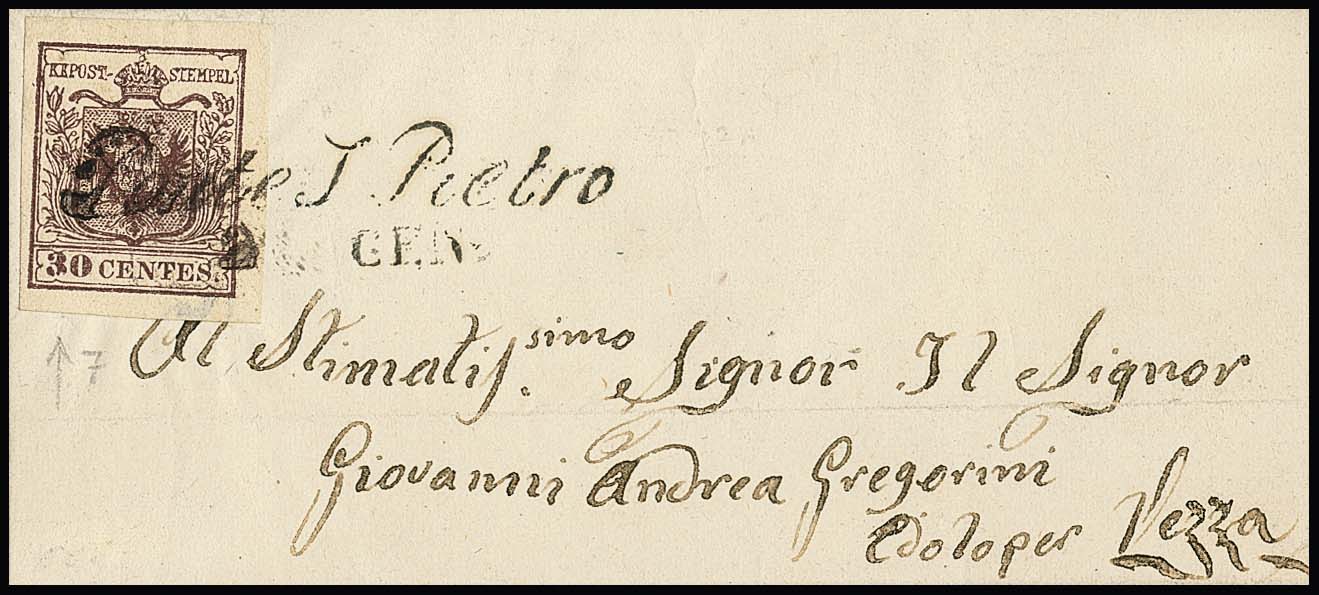 KKPOST-STEMPEL
30 CENTES.
Ponte S Pietro
GEN.
Al Stimatis.simo Signor Il Signor
Giovanni Andrea Gregorini
Edolo per Vezza
7